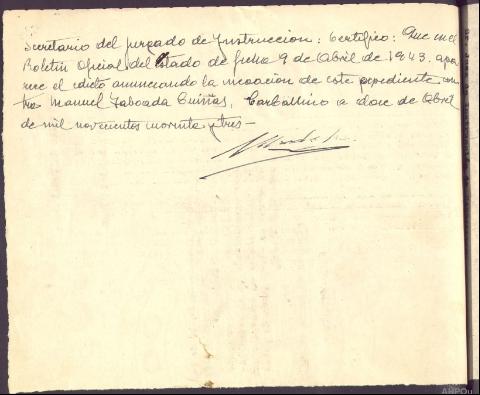 Secretario del juzgado de Instruccion: Certifico: Que en el
Boletin Oficial del Estado de fecha 9 de Abril de 1943. apa
rece el edicto anunciando la incoacion de este expediente con
tra Manuel Taboada Guiñas, Carballino a doce de Abril
de mil novecientos cuarenta y tres-
AHPOu